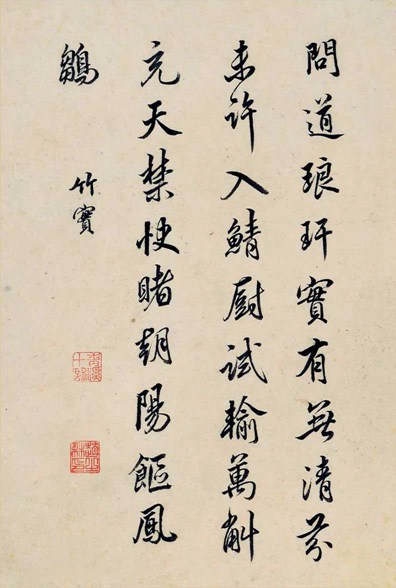 問道琅玕實有無清芬
未許入鯖厨試輸萬斛
充天禁快睹朝陽饇鳳
鶵
竹實